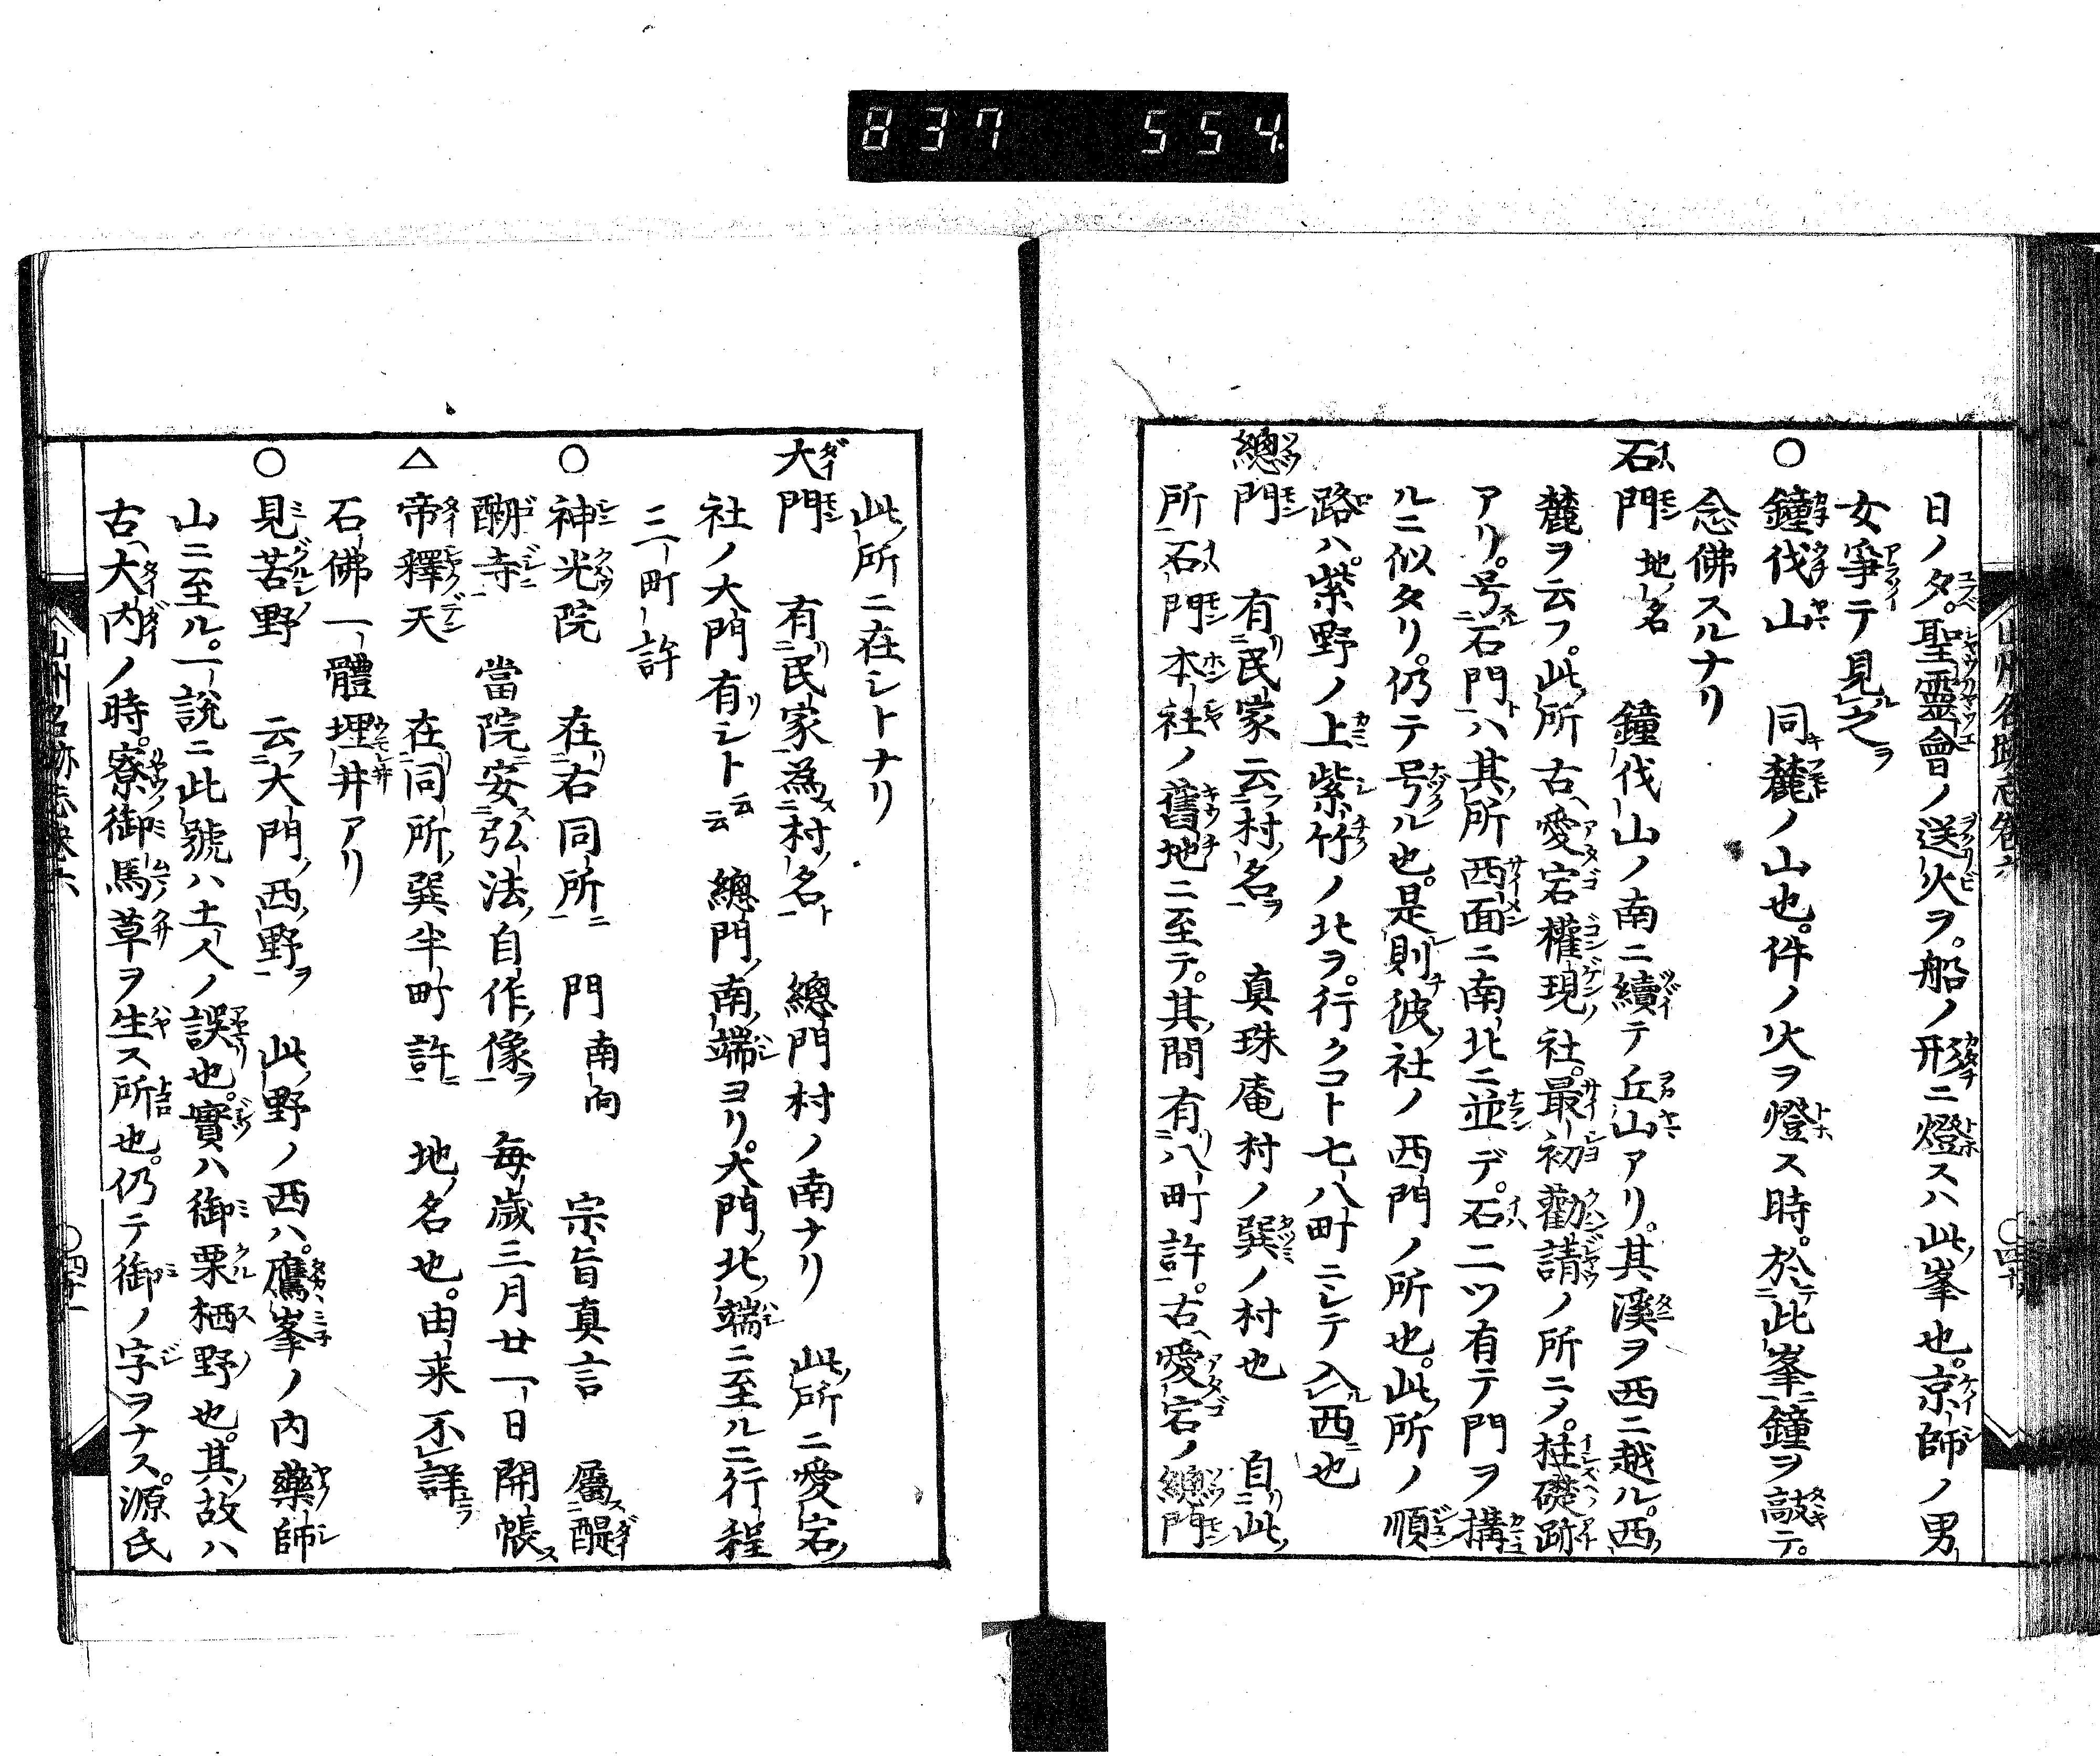 837 554
日ノ夕。聖靈會ノ送火ヲ。船ノ形ニ燈スハ此峯也。京師ノ男
女爭テ見之ヲ
○鐘伐山 同麓ノ山也。件ノ火ヲ燈ス時。於此峯鐘ヲ敲テ。
念佛スルナリ
石門 地名 鐘伐山ノ南ニ續テ丘山アリ。其溪ヲ西ニ越ル。西ノ
麓ヲ云フ。此所古ヘ愛宕權現ノ社。最初勸請ノ所ニメ。柱礎ノ跡
アリ。号石門ト ハ其ノ所西面ニ南北ニ並デ。石二ツ有テ門ヲ構
ルニ似タリ。仍テ号ル也。是則チ彼ノ社ノ西門ノ所也。此所ノ順
路ハ。紫野ノ上紫竹ノ北ヲ。行クコト七八町ニシテ入ル西ニ也
總門 有民家云村ノ名ヲ 真珠庵村ノ巽ノ村也 自此ノ
所石門本社ノ舊地ニ至テ。其間有八町許。古ヘ愛宕ノ總門
此ノ所ニ在シトナリ
大門 有リ民家為ス村ノ名ト 總門村ノ南ナリ 此ノ所ニ愛宕ノ
社ノ大門有リシト云云 總門ノ南ノ端ヨリ。大門ノ北ノ端ニ至ルニ行程
二町許
○神光院 在右同所ニ 門南向 宗旨真言 屬ス醍
醐寺ニ 當院安ス弘法ノ自作ノ像ヲ 每歲三月廿一日開帳ス
△帝釋天 在同所ノ巽半町許ニ 地ノ名也。由来不詳
石佛一體埋井アリ
○見苦野 云フ大門ノ西ノ野ヲ 此ノ野ノ西ハ。鷹峯ノ内藥師
山ニ至ル。一說ニ此號ハ土人ノ誤也。實ハ御栗栖野也。其ノ故ハ
古ヘ大内ノ時。寮御馬草ヲ生ス所也。仍テ御ノ字ヲナス。源氏
山州名跡志卷六